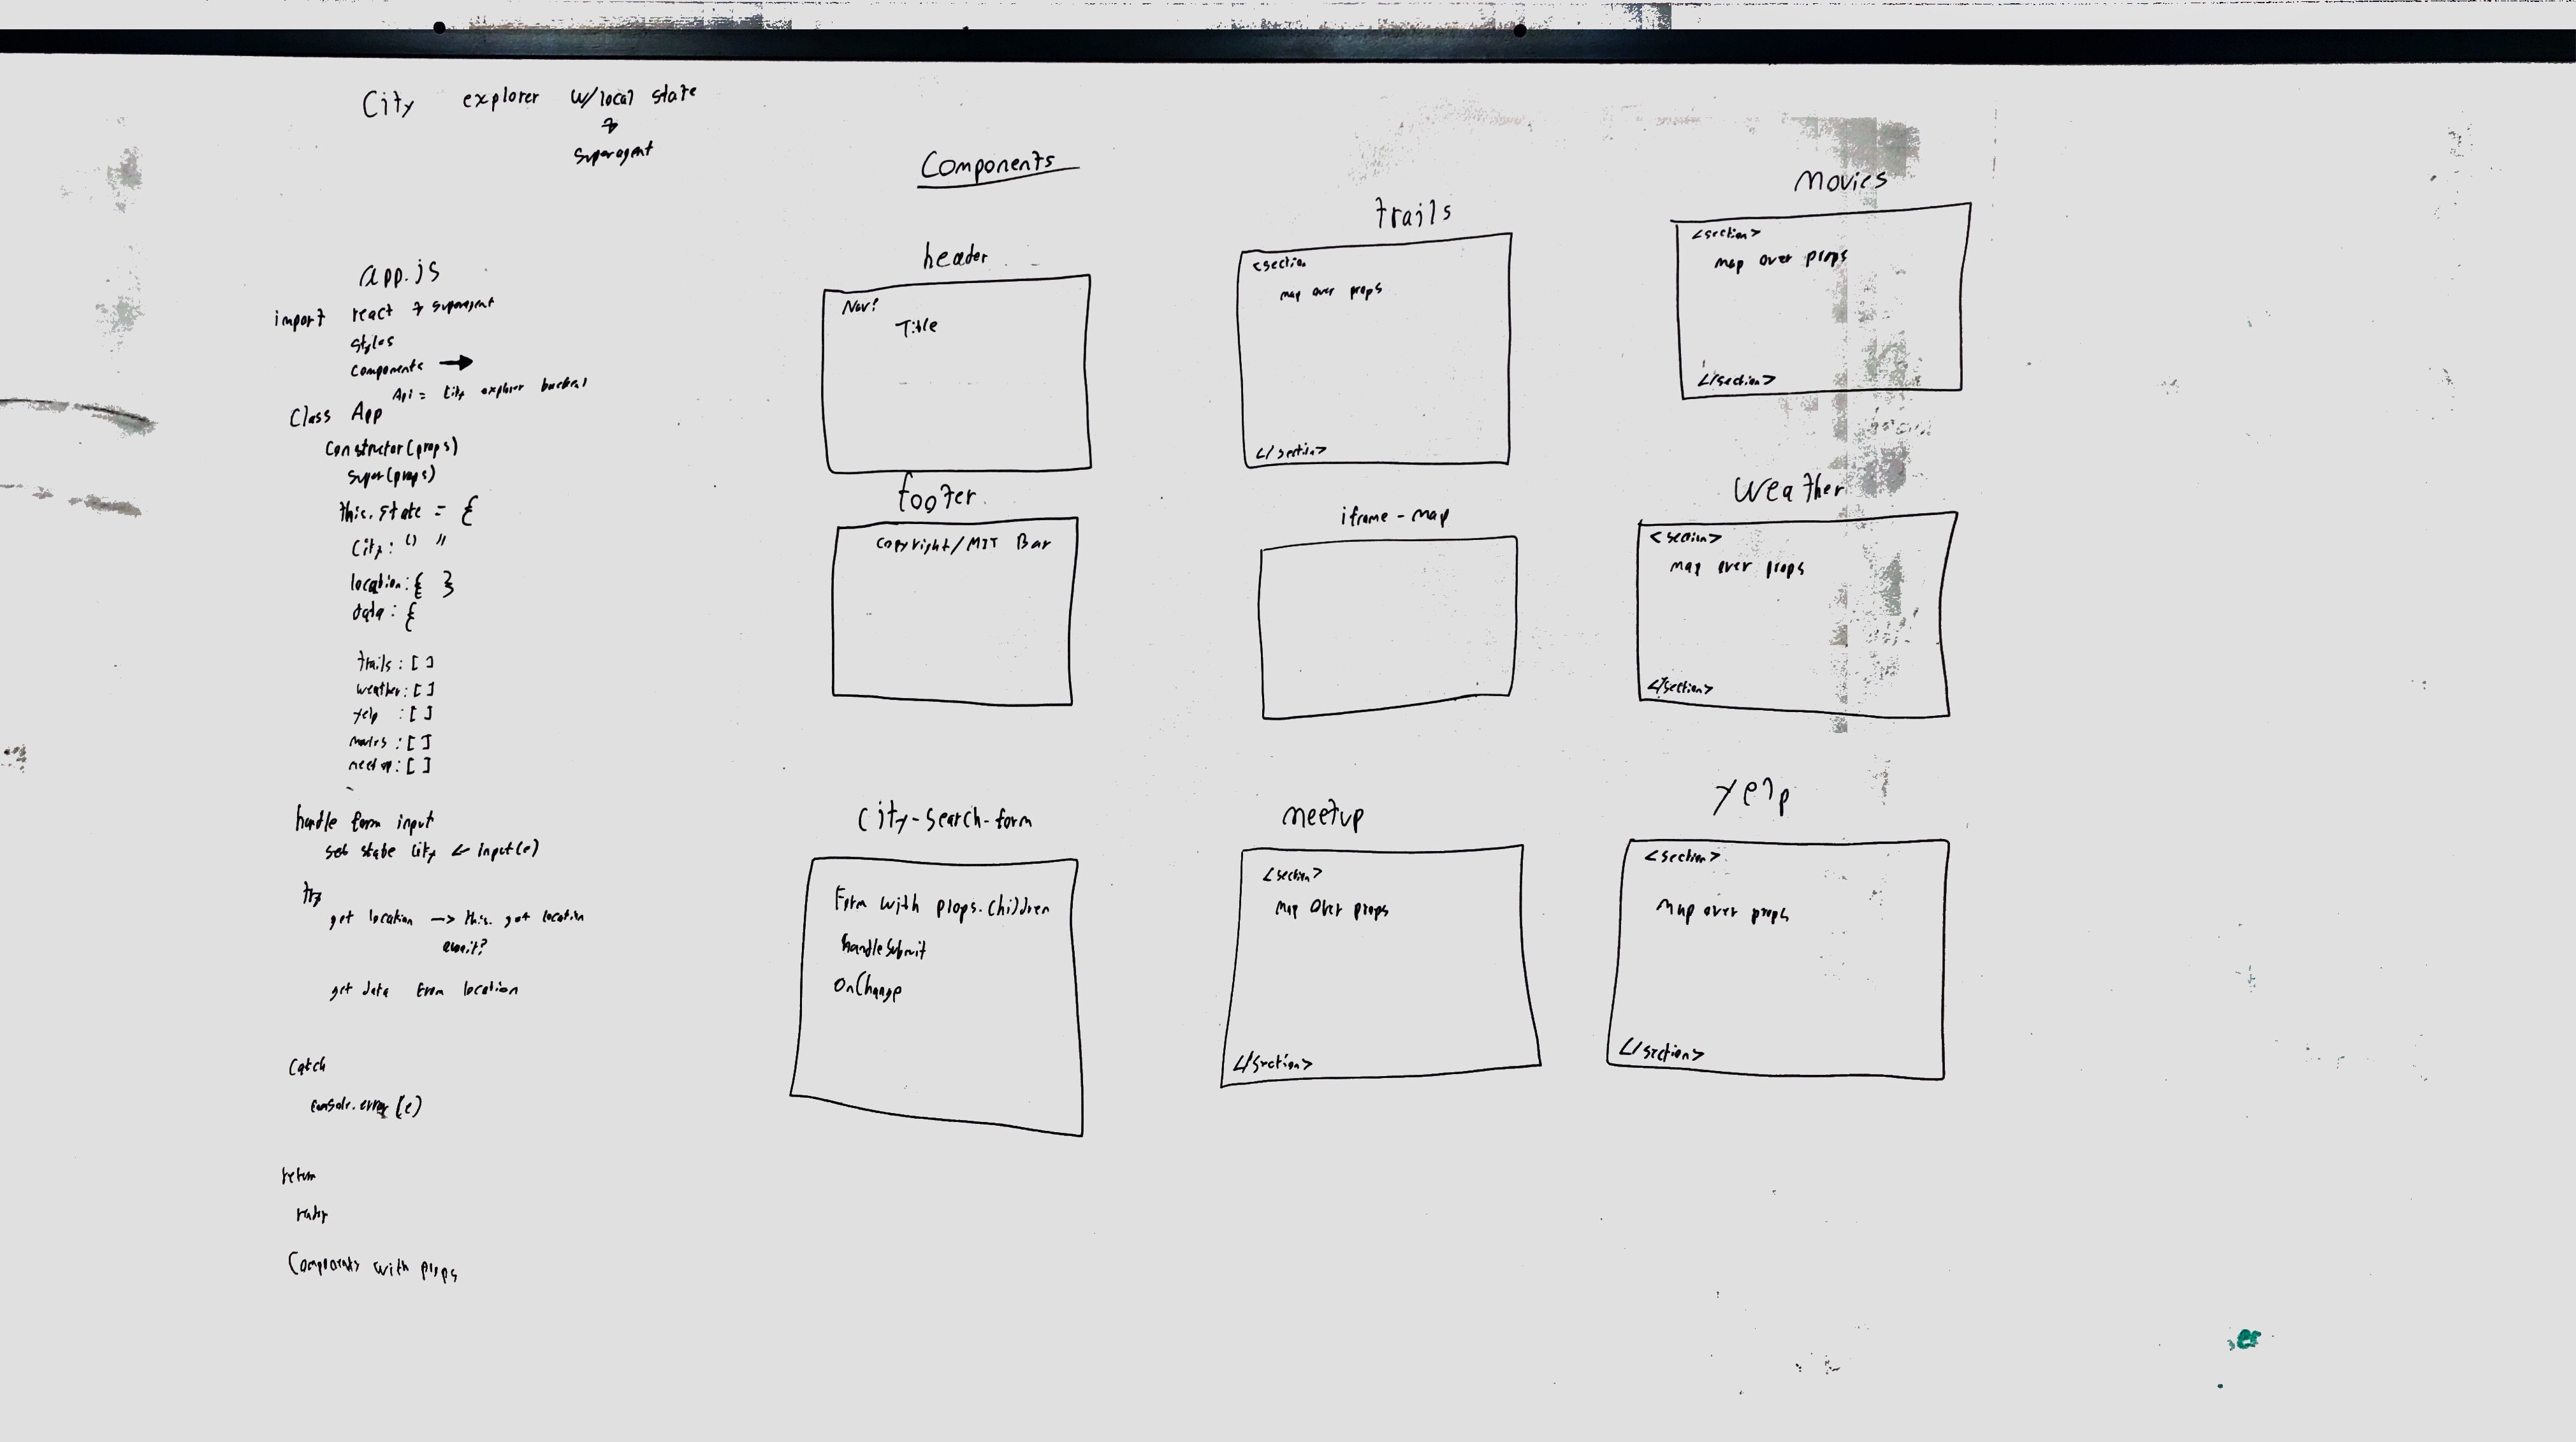 City explorer w/local state
+
Superagent
app.js
import react + superagent
styles
components →
Api = City explorer backend
Class App
Constructor(props)
Super(props)
this.state = {
City: " "
location: { }
data: {
trails : [ ]
weather: [ ]
yelp : [ ]
movies : [ ]
meetup: [ ]
handle form input
set state city ← input(e)
try
get location —> this. get location
await?
get data from location
Catch
console.error(e)
return
render
Components with props
Components
header
Nav?
Title
footer
Copyright/MIT Bar
City-search-form
Form with props.children
handleSubmit
OnChange
trails
<section
map over props
</section>
iframe - map
meetup
<section>
map over props
</section>
Movies
<section>
map over props
</section>
Weather
<section>
map over props
</section>
yelp
<section>
map over props
</section>